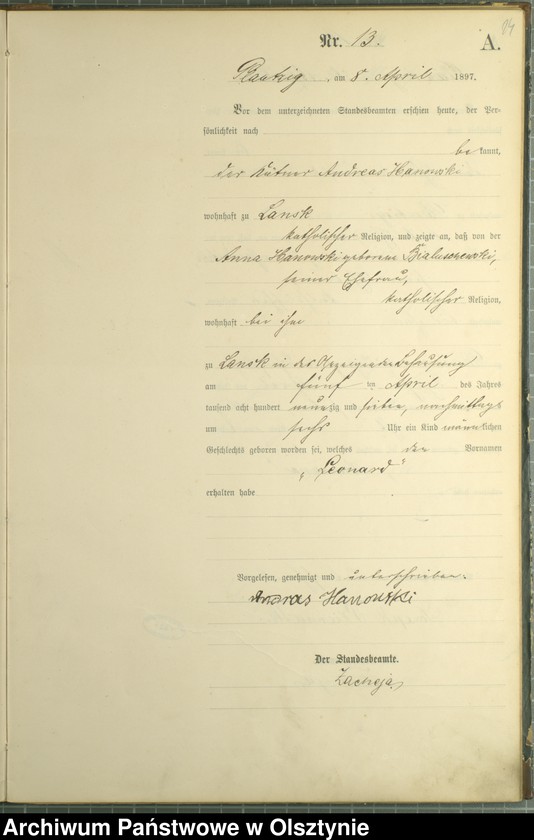 84
Nr. 13.
A.
Plautzig, am 8. April 1897.
Vor dem unterzeichneten Standesbeamten erschien heute, der Per-
sönlichkeit nach
be kannt,
der Kätner Andreas Hanowski
wohnhaft zu Lansk
katholischer Religion, und zeigte an, daß von der
Anna Hanowski geborene
seiner Ehefrau,
katholischer Religion,
wohnhaft bei ihm
zu Lansk in des Anzeigenden Behausung
am fünf ten April des Jahres
tausend acht hundert neun zig und sieben, nachmittags
um sechs Uhr ein Kind männ lichen
Geschlechts geboren worden sei, welches den Vornamen
„Leonard"
erhalten habe
Vorgelesen, genehmigt und unterschrieben.
Andras Hanowski
Der Standesbeamte.
Zacheja
Archiwum Państwowe w Olsztynie